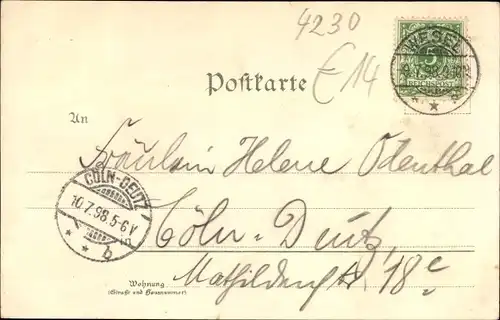 4230
WESEL
5
9.7.98.
REICHSPOST
Postkarte
E 14
An
Fräulein Helene Odenthal
CÖLN-DEUTZ
10.7.98.5-6V
in
Cöln-Deutz
b
Mathildenstr. 18c
Wohnung
(Straße und Hausnummer)